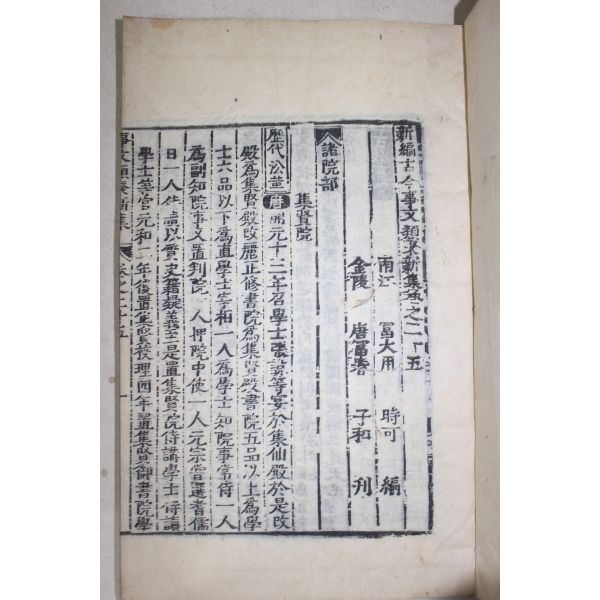 新編古今事文類聚新集卷之二十五
南江 冨大用 時可 編
金陵 唐冨春 子和 刊
諸院部
集賢院
歷代沿革 唐 開元十三年召學士張說等宴於集仙殿於是改
殿爲集賢殿改麗正修書院爲集賢殿書院五品以上爲學
士六品以下爲直學士宰相一人爲學士知院事常侍一人
爲副知院事又置判院一人押院中使一人元宗嘗選耆儒
日一人侍讀以質史籍疑義至是置集賢院侍講學士侍讀
學士等官元和二年後置集賢校理四年置集賢御書院學
事文類聚新集